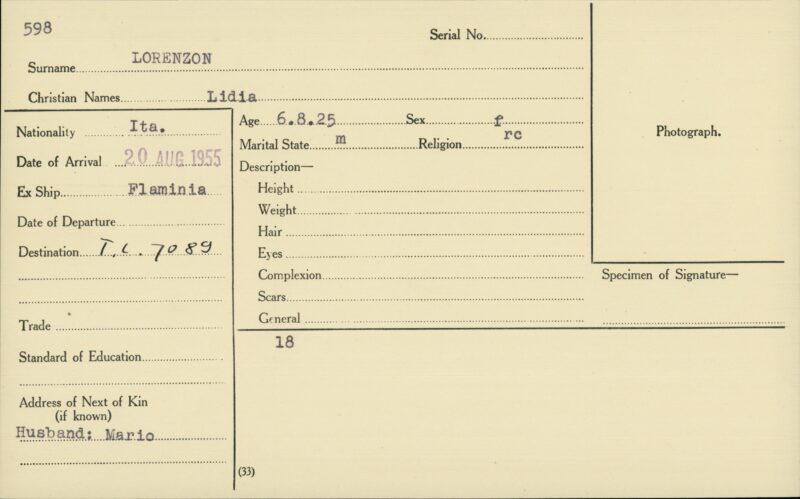 598
Serial No.
Surname LORENZON
Christian Names Lidia
Nationality Ita.
Date of Arrival 20 AUG 1955
Ex Ship Flaminia
Date of Departure
Destination T.C. 7089
Trade
Standard of Education
Address of Next of Kin
(if known)
Husband: Mario
Age 6.8.25 Sex f
Marital State m Religion rc
Description—
Height
Weight
Hair
Eyes
Complexion
Scars
General
18
(33)
Photograph.
Specimen of Signature—